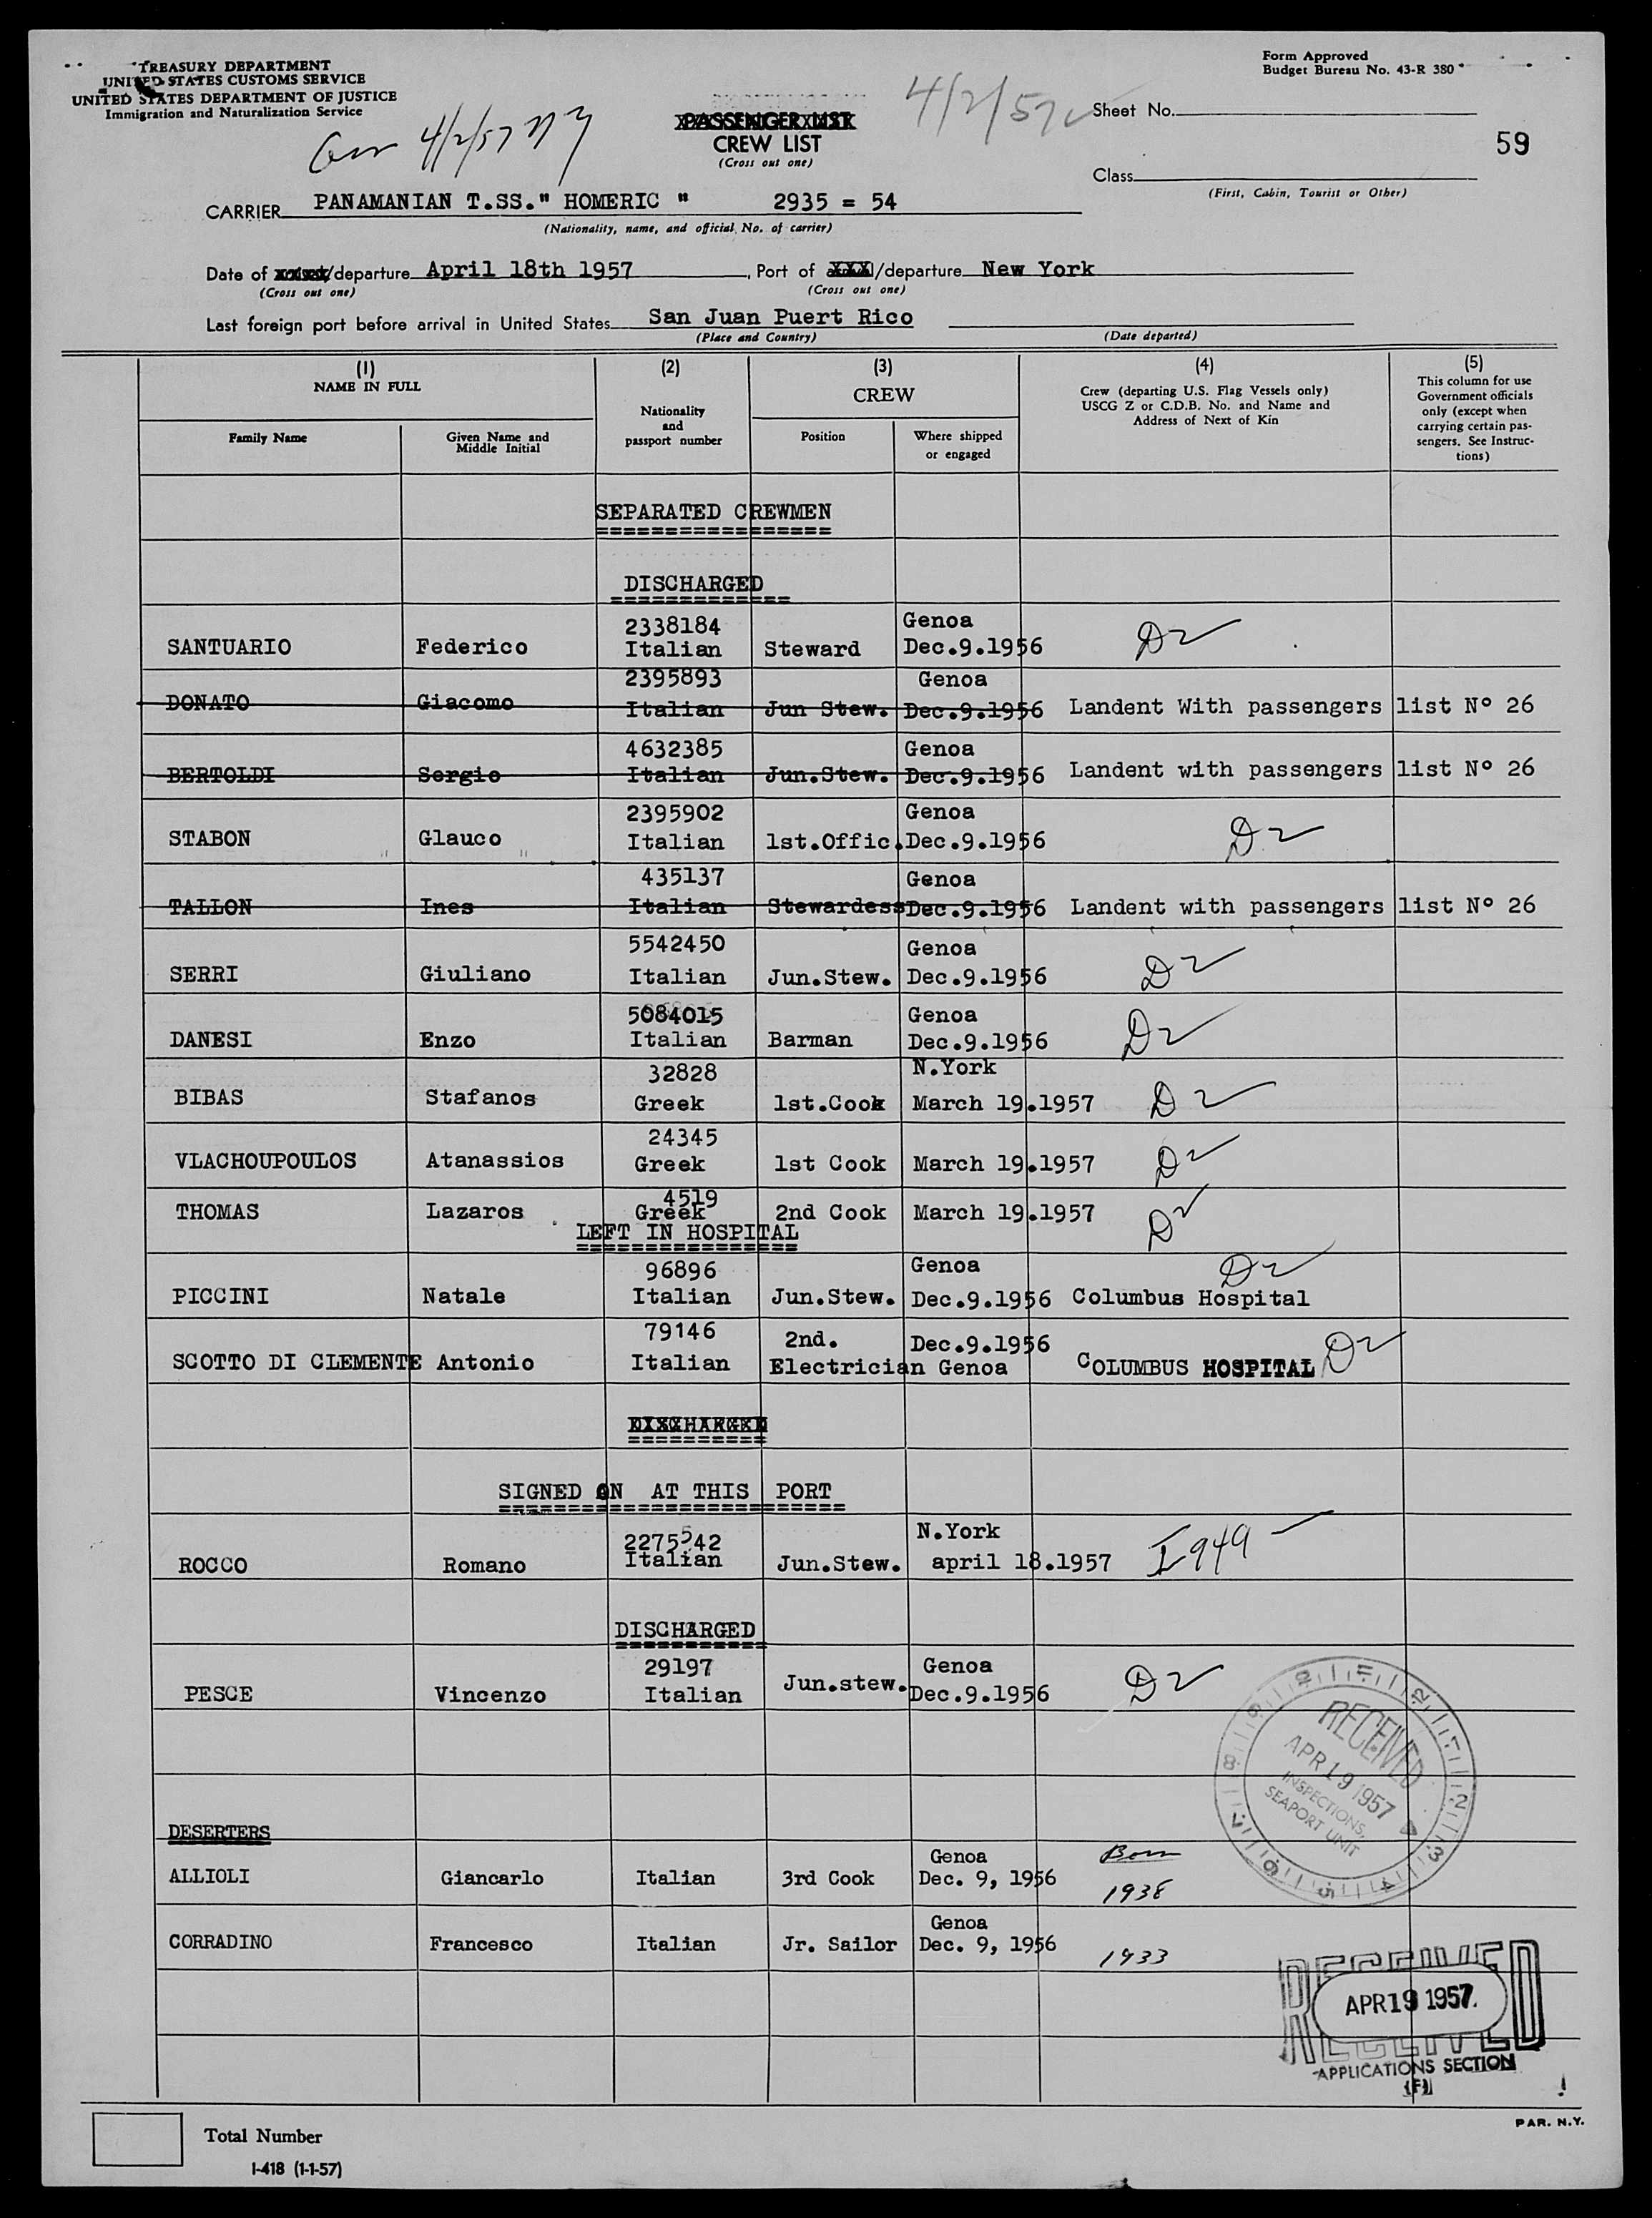 TREASURY DEPARTMENT
UNITED STATES CUSTOMS SERVICE
UNITED STATES DEPARTMENT OF JUSTICE
Immigration and Naturalization Service
Form Approved
Budget Bureau No. 43-R 380
4/2/57
4/2/57 NY
PASSENGER LIST
CREW LIST
(Cross out one)
Sheet No.
59
Class
(First, Cabin, Tourist or Other)
CARRIER PANAMANIAN T.SS." HOMERIC " 2935 = 54
(Nationality, name, and official No. of carrier)
Date of /departure April 18th 1957, Port of /departure New York
(Cross out one) (Cross out one)
Last foreign port before arrival in United States San Juan Puert Rico
(Place and Country) (Date departed)
(1) (2) (3) (4) (5)
NAME IN FULL
Family Name
Given Name and
Middle Initial
Nationality
and
passport number
CREW
Position
Where shipped
or engaged
Crew (departing U.S. Flag Vessels only)
USCG Z or C.D.B. No. and Name and
Address of Next of Kin
This column for use
Government officials
only (except when
carrying certain pas-
sengers. See Instruc-
tions)
SEPARATED CREWMEN
DISCHARGED
2338184 Genoa
SANTUARIO Federico Italian Steward Dec.9.1956 D2
2395893 Genoa
DONATO Giacomo Italian Jun Stew. Dec.9.1956 Landent With passengers list Nº 26
4632385 Genoa
BERTOLDI Sergio Italian Jun.Stew. Dec.9.1956 Landent with passengers list Nº 26
2395902 Genoa
STABON Glauco Italian 1st.Offic. Dec.9.1956 D2
435137 Genoa
TALLON Ines Italian Stewardess Dec.9.1956 Landent with passengers list Nº 26
5542450 Genoa
SERRI Giuliano Italian Jun.Stew. Dec.9.1956 D2
5084015 Genoa
DANESI Enzo Italian Barman Dec.9.1956 D2
32828 N.York
BIBAS Stafanos Greek 1st.Cook March 19.1957 D2
24345
VLACHOUPOULOS Atanassios Greek 1st Cook March 19.1957 D2
4519
THOMAS Lazaros Greek 2nd Cook March 19.1957 D2
LEFT IN HOSPITAL
96896 Genoa D2
PICCINI Natale Italian Jun.Stew. Dec.9.1956 Columbus Hospital
79146 2nd. Dec.9.1956
SCOTTO DI CLEMENTE Antonio Italian Electrician Genoa COLUMBUS HOSPITAL D2
DISCHARGED
SIGNED ON AT THIS PORT
2275542 N.York
ROCCO Romano Italian Jun.Stew. april 18.1957 I949
DISCHARGED
29197 Genoa
PESCE Vincenzo Italian Jun.stew. Dec.9.1956 D2
RECEIVED
APR 19 1957
INSPECTIONS,
SEAPORT UNIT
DESERTERS
Genoa Born
ALLIOLI Giancarlo Italian 3rd Cook Dec. 9, 1956 1938
Genoa
CORRADINO Francesco Italian Jr. Sailor Dec. 9, 1956 1933
RECEIVED
APR 19 1957
APPLICATIONS SECTION
(F)
PAR. N.Y.
Total Number
I-418 (1-1-57)